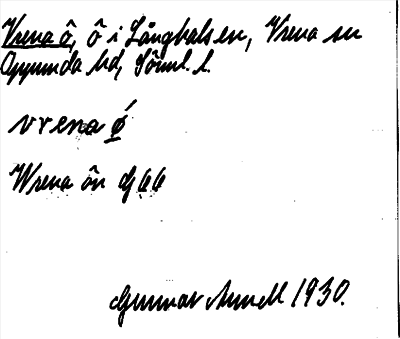 Vrena ö, ö i Långhalsen, Vrena sn
Oppunda hd, Söml. l.
vrena ǿ
Wrena ön Gj 66
Gunnar Arnell 1930.